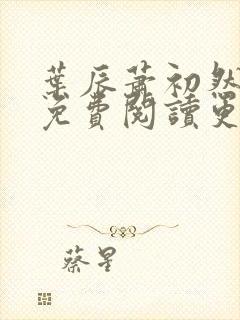 葉辰蕭初然
免費閱讀更
蔡星